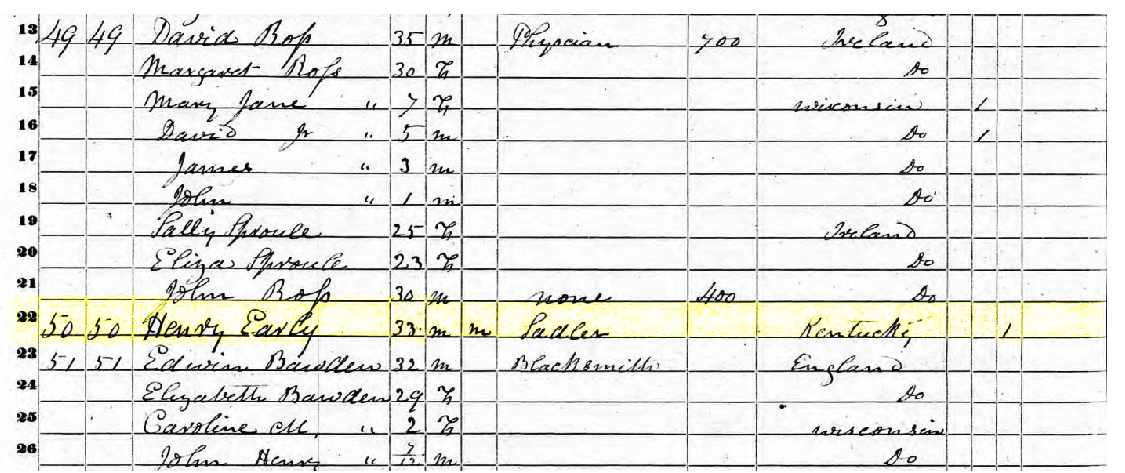 13 49 49 David Ross 35 m Physcian 700 Ireland
14 Margaret Ross 30 F Do
15 Mary Jane " 7 F Wisconsin 1
16 David Jr " 5 m Do 1
17 James " 3 m Do
18 John " 1 m Do
19 Sally Sproule 25 F Ireland
20 Eliza Sproule 23 F Do
21 John Ross 30 m none 400 Do
22 50 50 Henry Early 33 m m Sadler Kentucky 1
23 51 51 Edwin Bawden 32 m Blacksmith England
24 Elizabeth Bawden 29 F Do
25 Caroline M. " 2 F Wisconsin
26 John Henry " 7/12 m Do